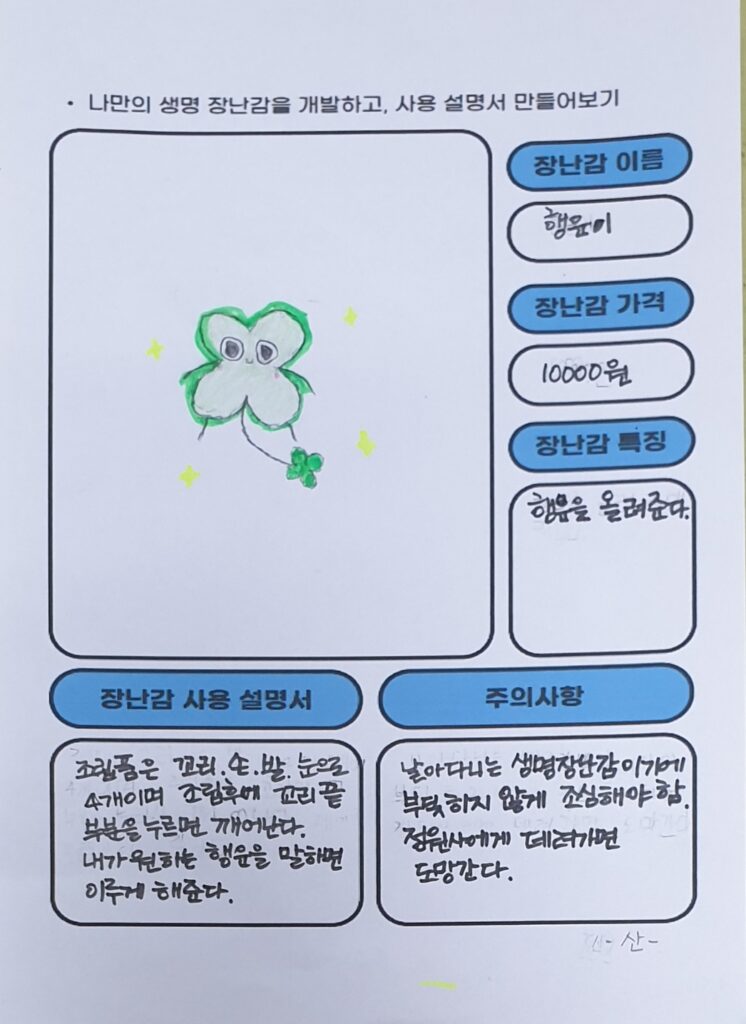 • 나만의 생명 장난감을 개발하고, 사용 설명서 만들어보기
장난감 이름
행운이
장난감 가격
10000원
장난감 특징
행운을 올려준다.
장난감 사용 설명서
조립품은 꼬리.손.발.눈으로
4개이며 조립후에 꼬리 끝
부분을 누르면 깨어난다.
내가 원하는 행운을 말하면
이루게 해준다.
주의사항
날아다니는 생명장난감이기에
부딪히지 않게 조심해야 함.
정원사에게 데려가면
도망간다.
-산-